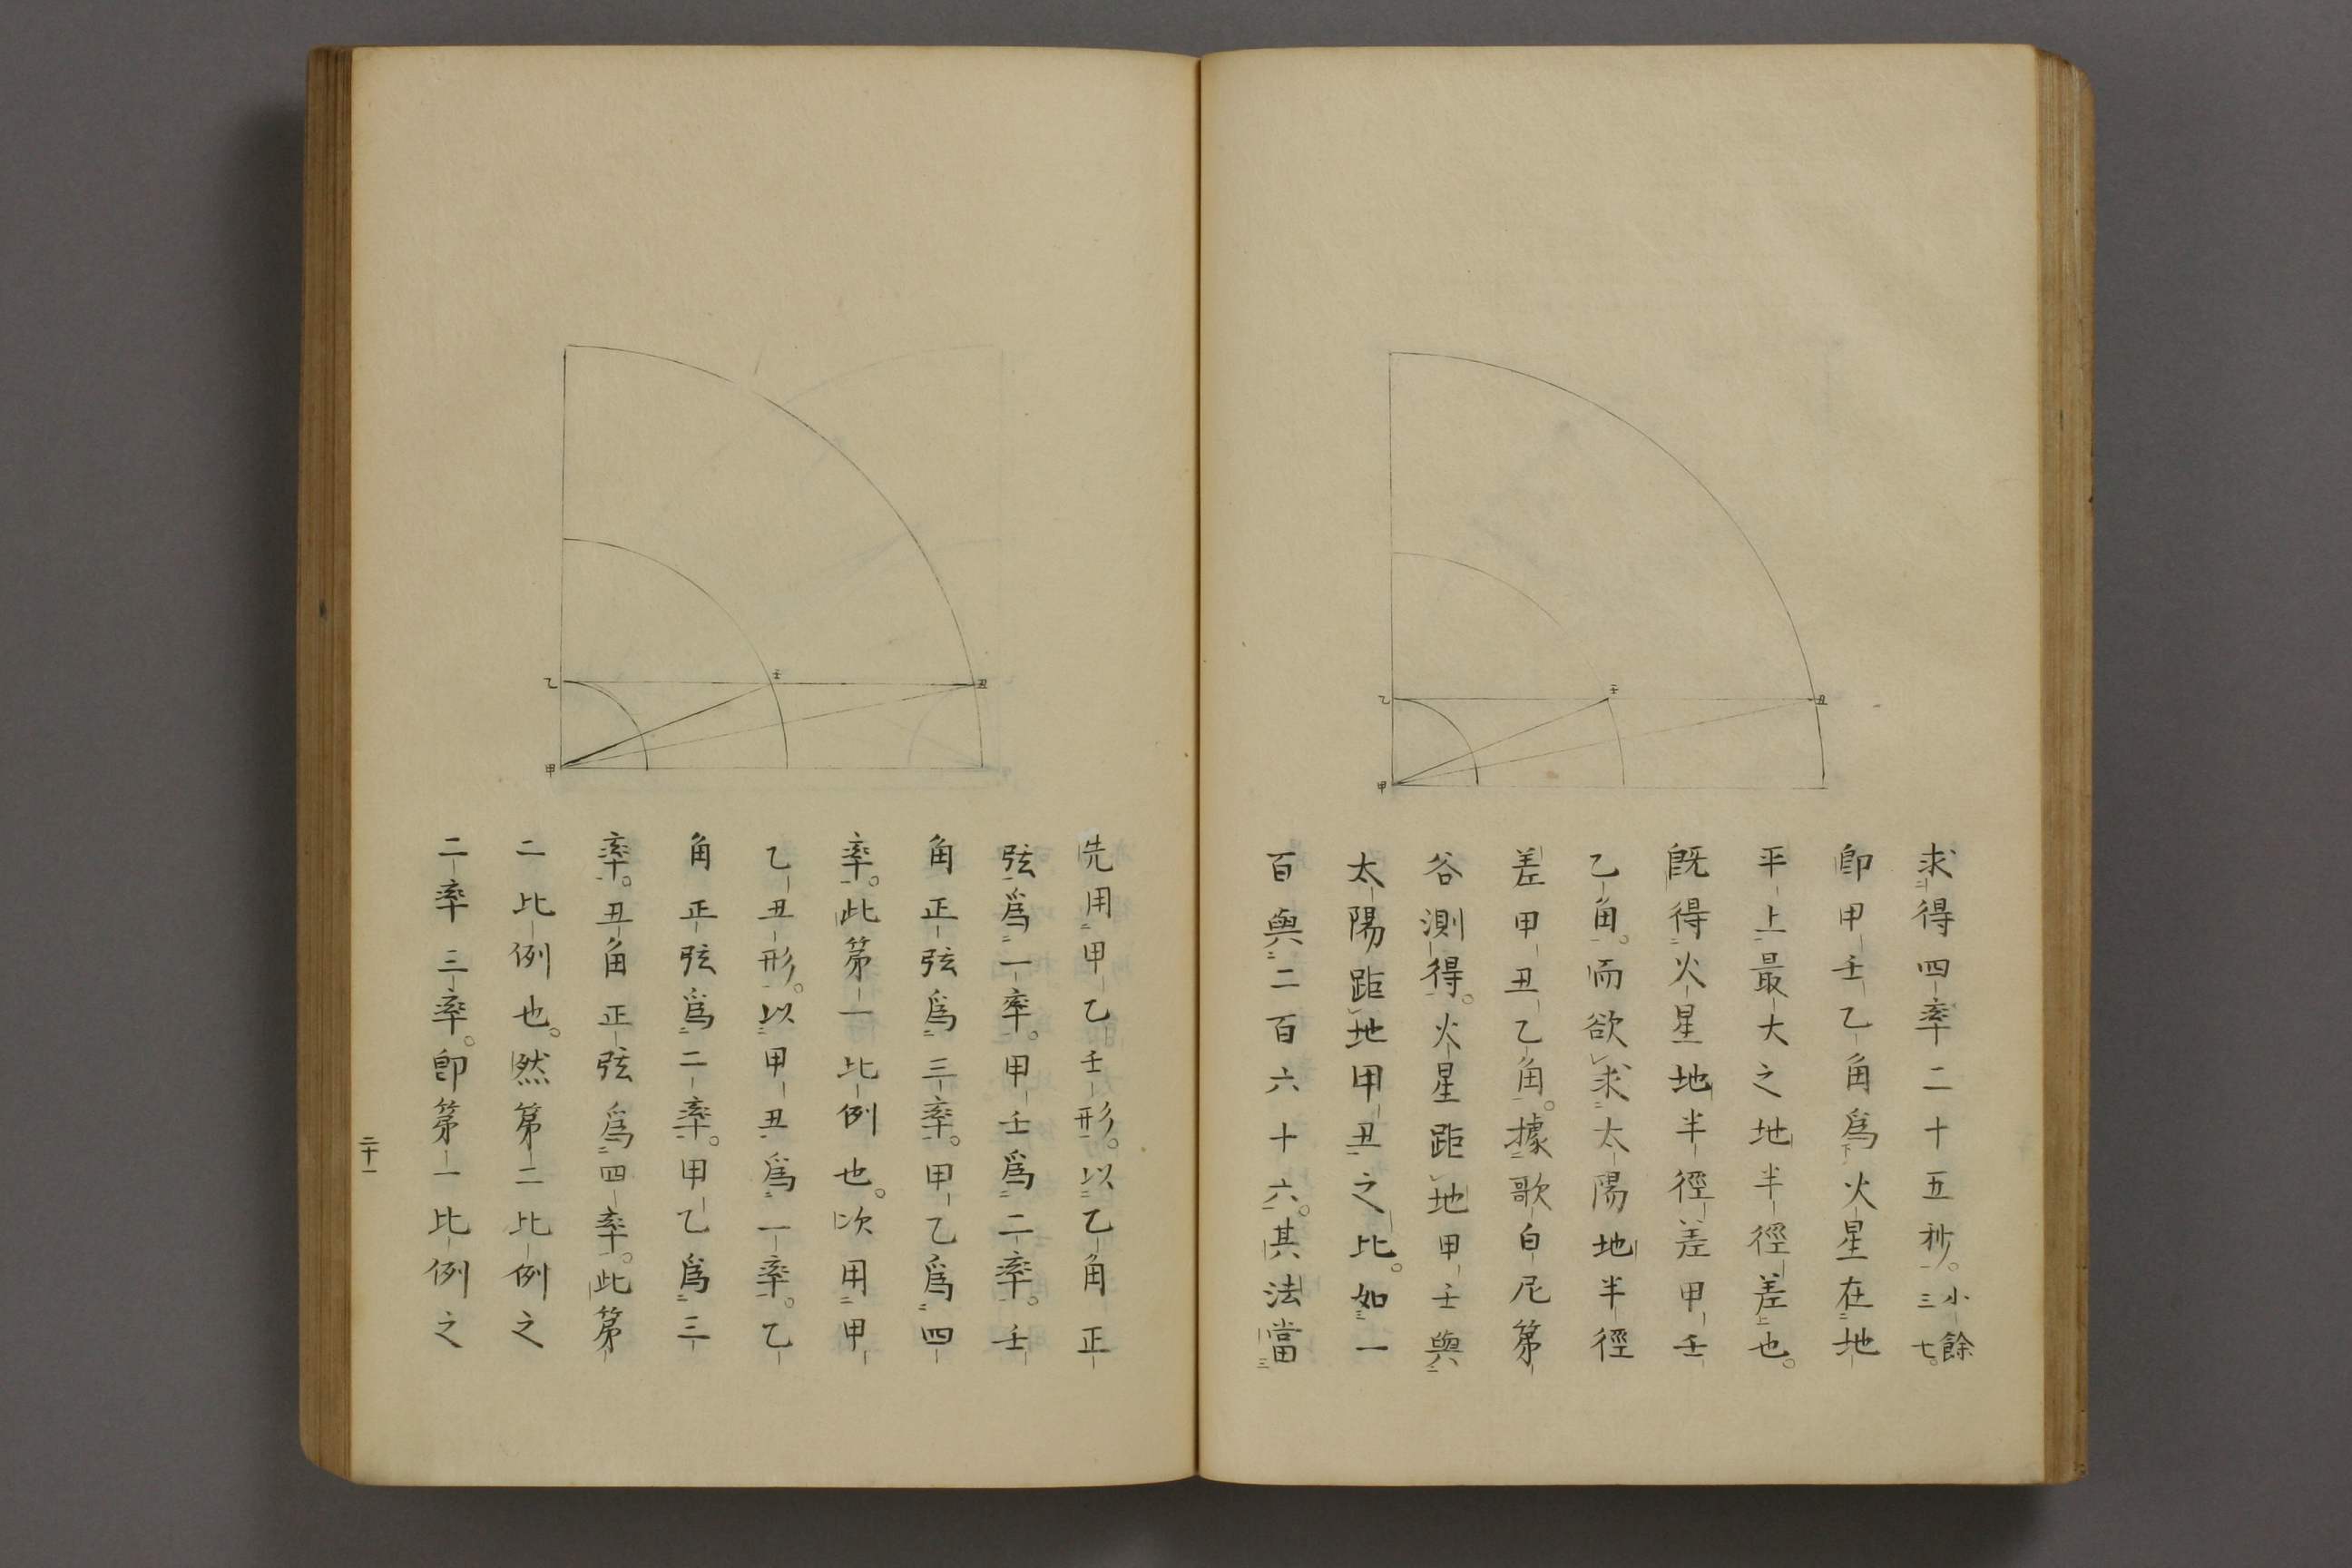 乙
壬
丑
甲
求得四率二十五秒。小餘三七。
卽甲壬乙角爲火星在地
平上最大之地半徑差也。
旣得火星地半徑差甲壬
乙角。而欲求太陽地半徑
差甲丑乙角。據歌白尼第
谷測得。火星距地甲壬與
太陽距地甲丑之比。如一
百與二百六十六。其法當
乙
壬
丑
甲
先用甲乙壬形。以乙角正
弦爲一率。甲壬爲二率。壬
角正弦爲三率。甲乙爲四
率。此第一比例也。次用甲
乙丑形。以甲丑爲一率。乙
角正弦爲二率。甲乙爲三
率。丑角正弦爲四率。此第
二比例也。然第二比例之
二率三率。卽第一比例之
二十一